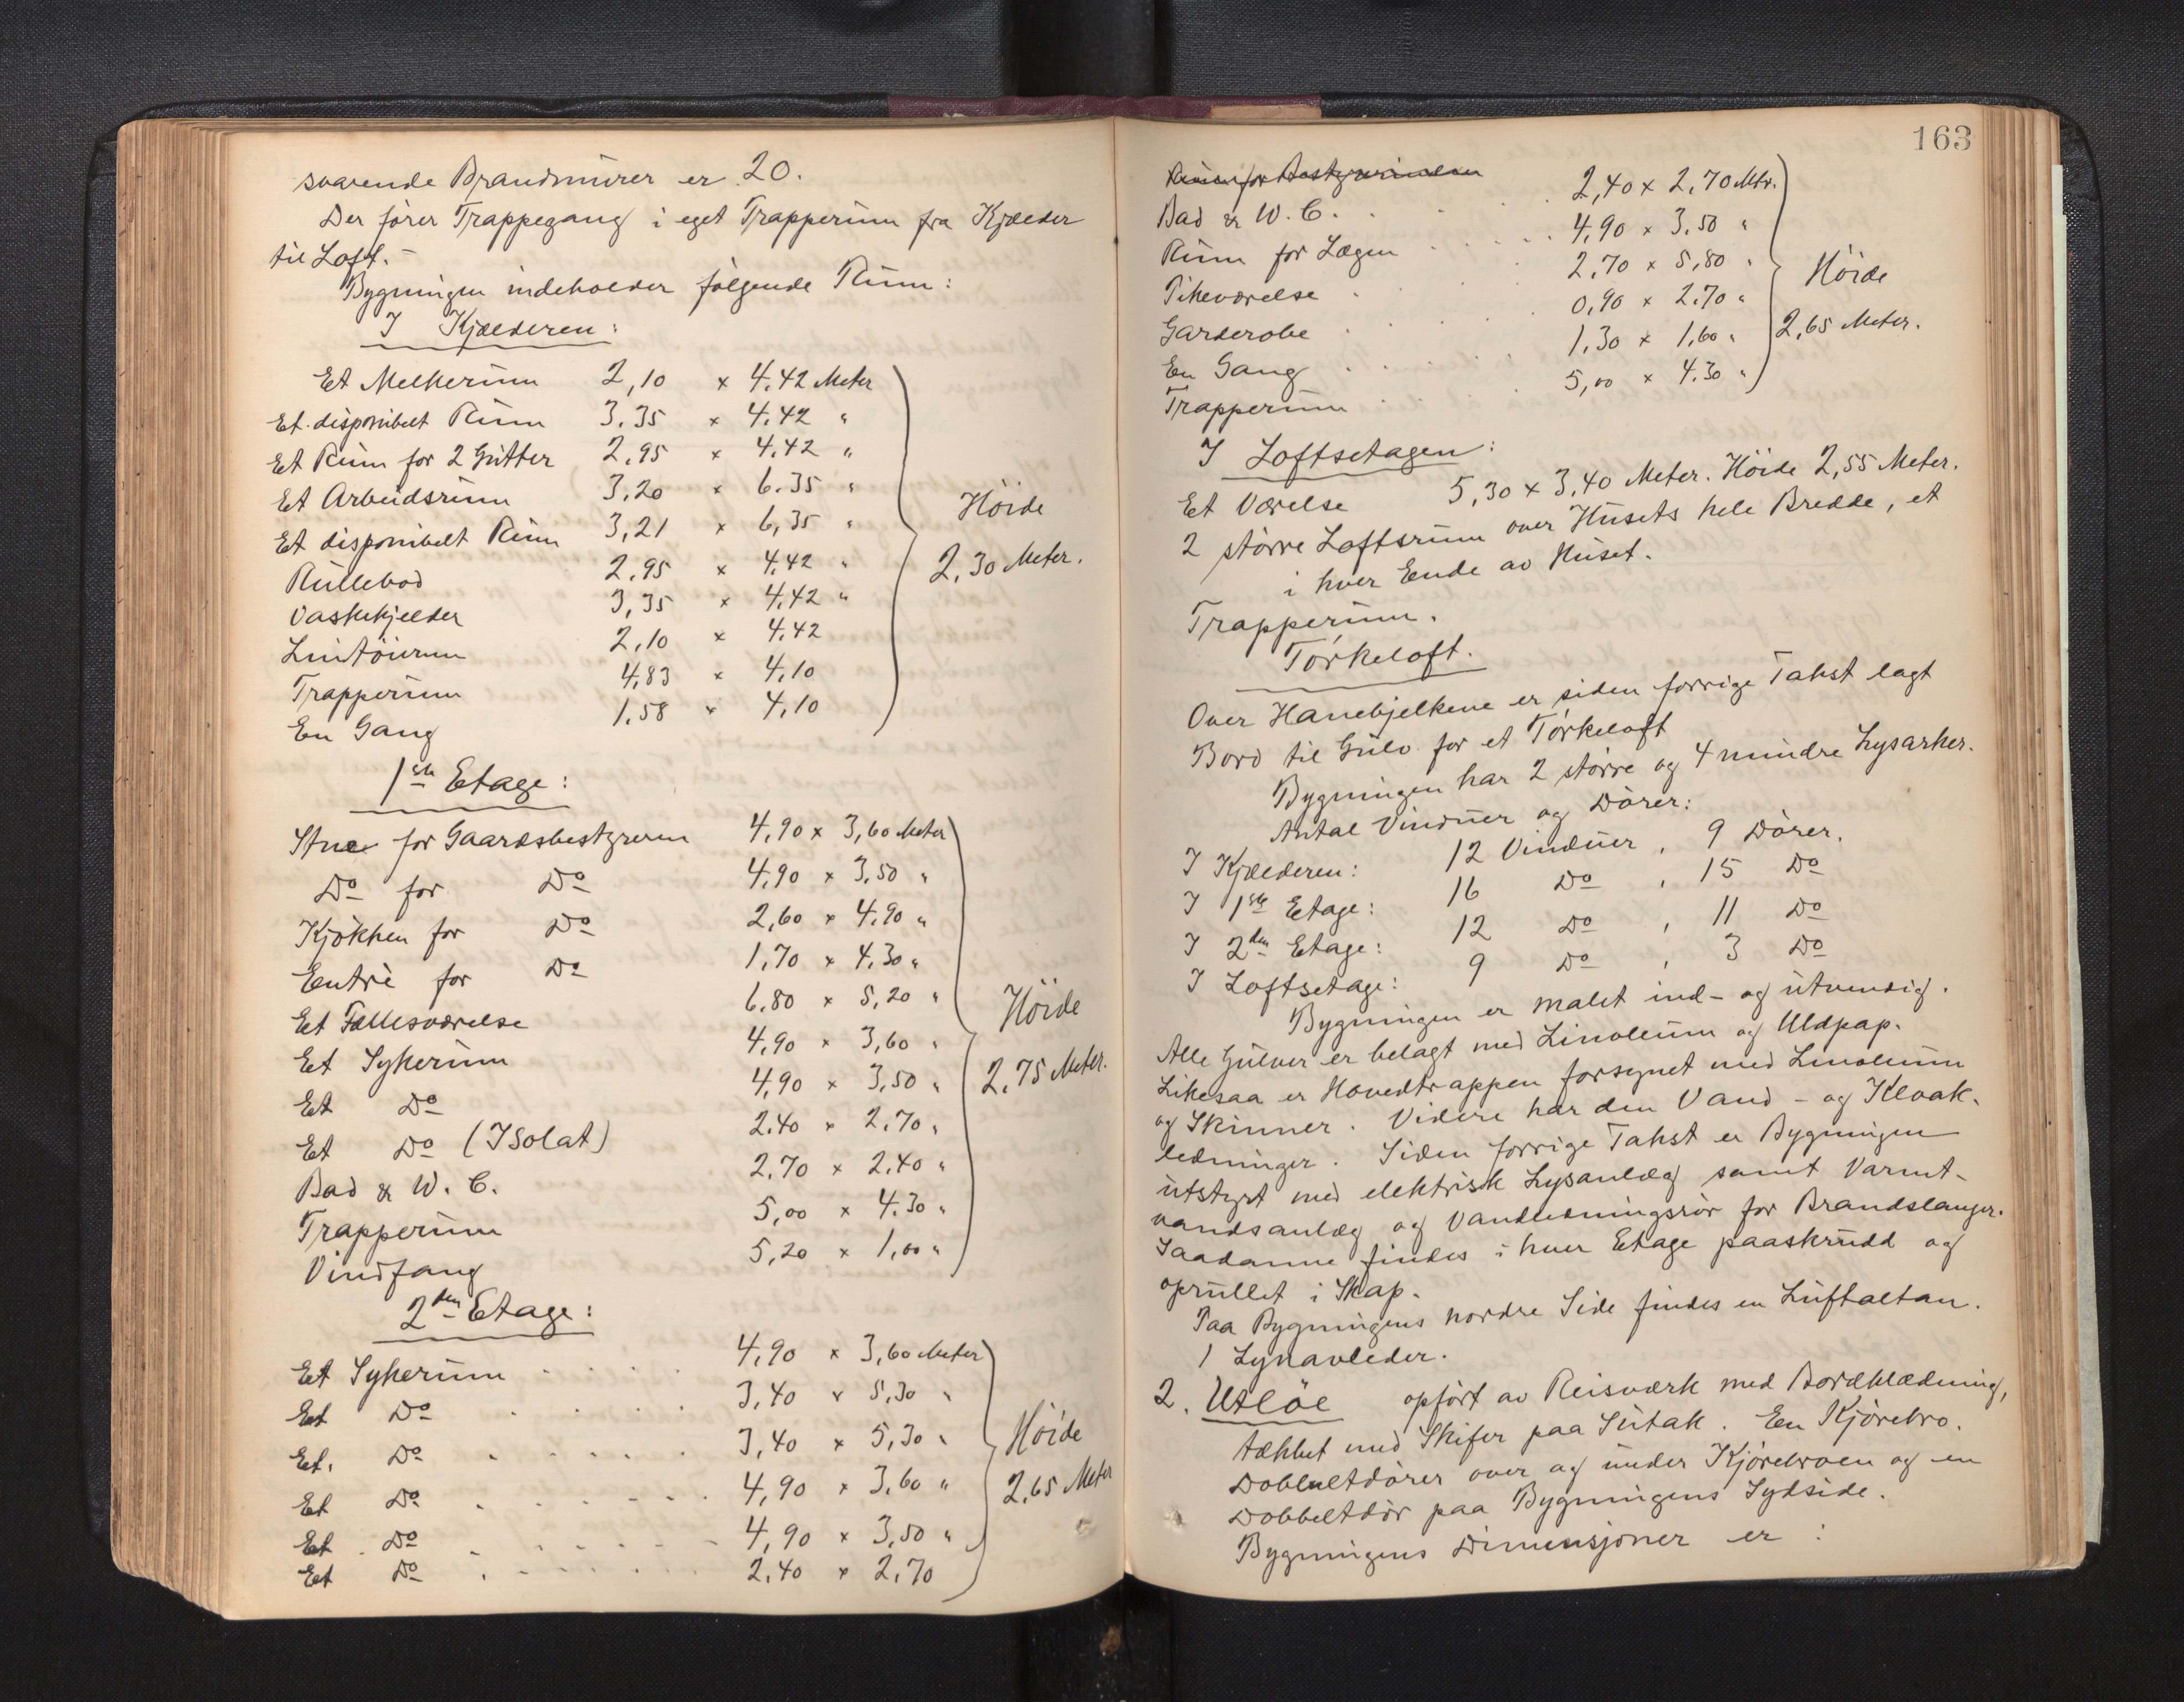 svarende Brandmürer er 20.
Der fører Trappegang i eget Trapperüm fra Kjælder
til Loft. –
Bygningen indeholder følgende Rüm:
I Kjælderen:
Et Melkerüm 2,10 x 4.42 Meter
Et disponibelt Rüm 3.35 x 4.42 "
Et Rüm for 2 Gütter 2.95 x 4.42 "
Et Arbeidsrüm 3,20 x 6.35 "
Et disponibelt Rüm 3,21 x 6,35 "
Rüllebod 2.95 x 4.42 "
Vaskekjelder 3,35 x 4.42 "
Lintöirüm 2,10 x 4.42
Trapperüm 4,83 x 4,10
En Gang 1.58 x 4,10
Höide
2,30 Meter.
1ste Etage:
Stue for Gaardsbestyreren 4,90 x 3,60 Meter
Do for Do 4,90 x 3,50 "
Kjökken for Do 2,60 x 4.90 "
Entrè for Do 1,70 x 4,30 "
Et Fællesværelse 6.80 x 5,20 "
Et Sykerüm 4,90 x 3,60 "
Et Do 4,90 x 3,50 "
Et Do (Isolat) 2.40 x 2,70 "
Bad & W. C. 2.70 x 2.40 "
Trapperüm 5,00 x 4.30 "
Vindfang 5,20 x 1,00 "
Höide
2,75 Meter.
2den Etage:
Et Sykerüm 4,90 x 3,60 Meter
Et Do 3,40 x 5,30 "
Et. Do 3,40 x 5,30 "
Et Do 4,90 x 3,60 "
Et Do 4,90 x 3,50 "
Et Do 2,40 x 2,70
Höide
2,65 Meter
163
Rüm for Bestyrerinden
Bad & W. C. 2,40 x 2,70 Mtr.
Rüm for Lægen 4,90 x 3,50 "
Pikeværelse 2,70 x 5,80 "
Garderobe 0,90 x 2.70 "
En Gang 1,30 x 1,60 "
Trapperüm 5,00 x 4.30 "
Höide
2,65 Meter.
I Loftsetagen:
Et Værelse 5,30 x 3,40 Meter. Höide 2,55 Meter.
2 större Loftsrüm over Hüsets hele Bredde, et
i hver Ende av Hüset.
Trapperüm.
Törkeloft.
Over Hanebjelkene er siden forrige Takst lagt
Bord til Gülv for et Törkeloft
Bygningen har 2 större og 4 mindre Lysarker.
Antal Vindüer og Dörer:
I Kjælderen: 12 Vindüer, 9 Dörer.
I 1ste Etage: 16 Do, 15 Do
I 2den Etage: 12 Do, 11 Do
I Loftsetage: 9 Do, 3 Do
Bygningen er malet ind- og ütvendig.
Alle Gülver er belagt med Linoleüm og Uldpap.
Likesaa er Hovedtrappen forsynet med Linoleüm
og Skinner. Videre har den Vand- og Kloak-
ledninger. Siden forrige Takst er Bygningen
ütstyrt med elektrisk Lysanlæg samt Varmt-
vandsanlæg og Vandledningsrör for Brandslanger.
Saadanne findes i hver Etage paaskrüdd og
oprüllet i Skap.
Paa Bygningens nordre Side findes en Lüftaltan.
1 Lynavleder.
2. Utlöe opfört av Reisværk med Bordklædning,
tækket med Skifer paa Sütak. En Kjörebro.
Dobbeltdörer over og ünder Kjörebroen og en
Dobbeltdör paa Bygningens Sydside.
Bygningens Dimensjoner er :